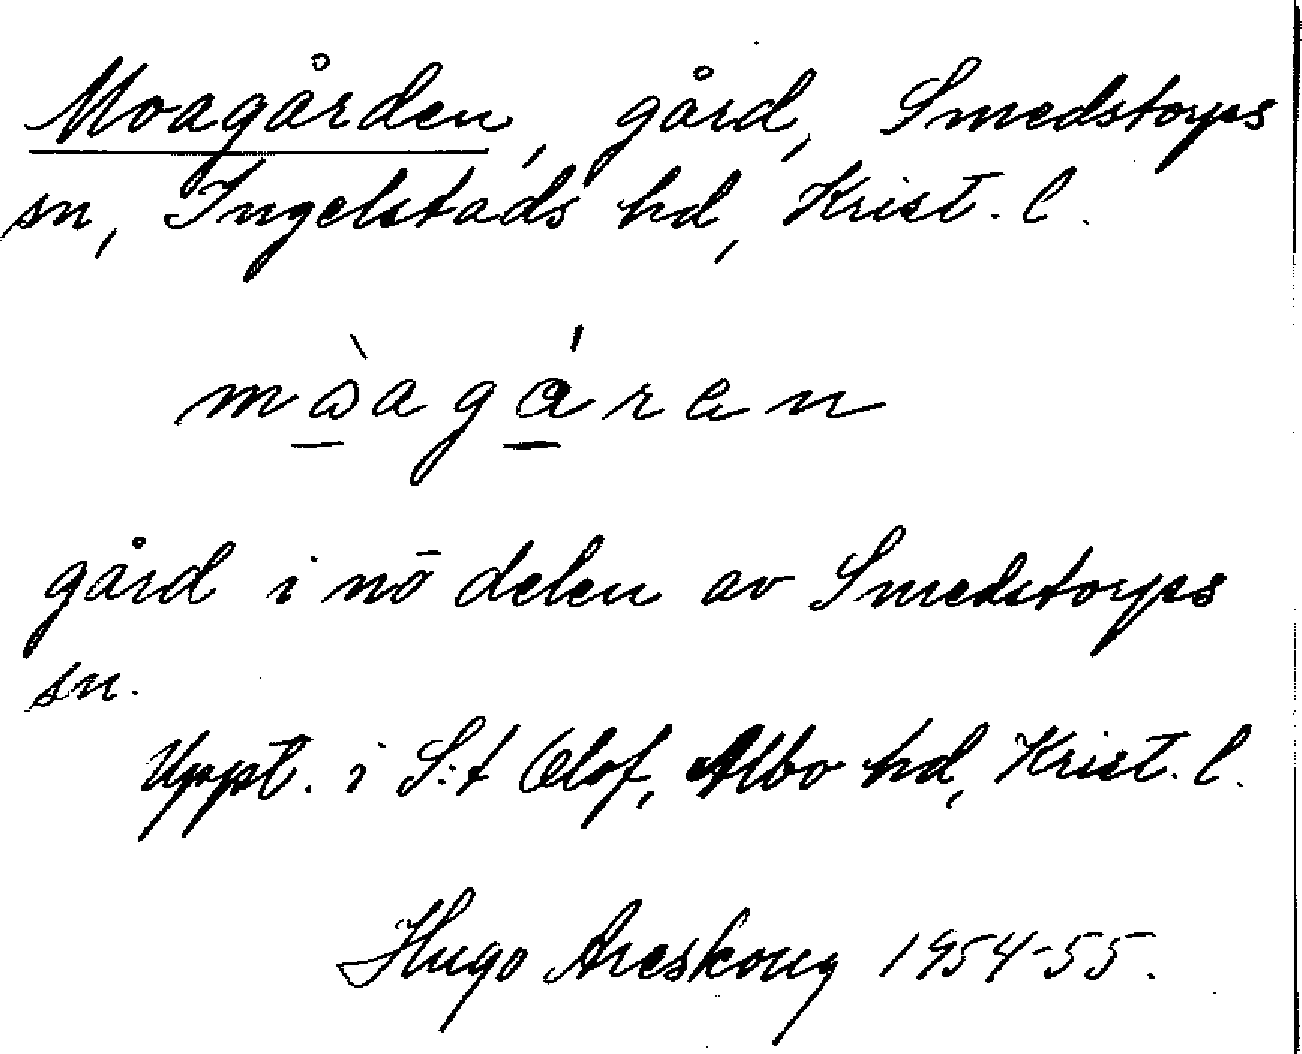 Moagården, gård, Smedstorps
sn, Ingelstads hd, Krist. l.
gård i nö delen av Smedstorps
sn.
Uppt. i S:t Olof, Albo hd, Krist. l.
Hugo Areskoug 1954-55.